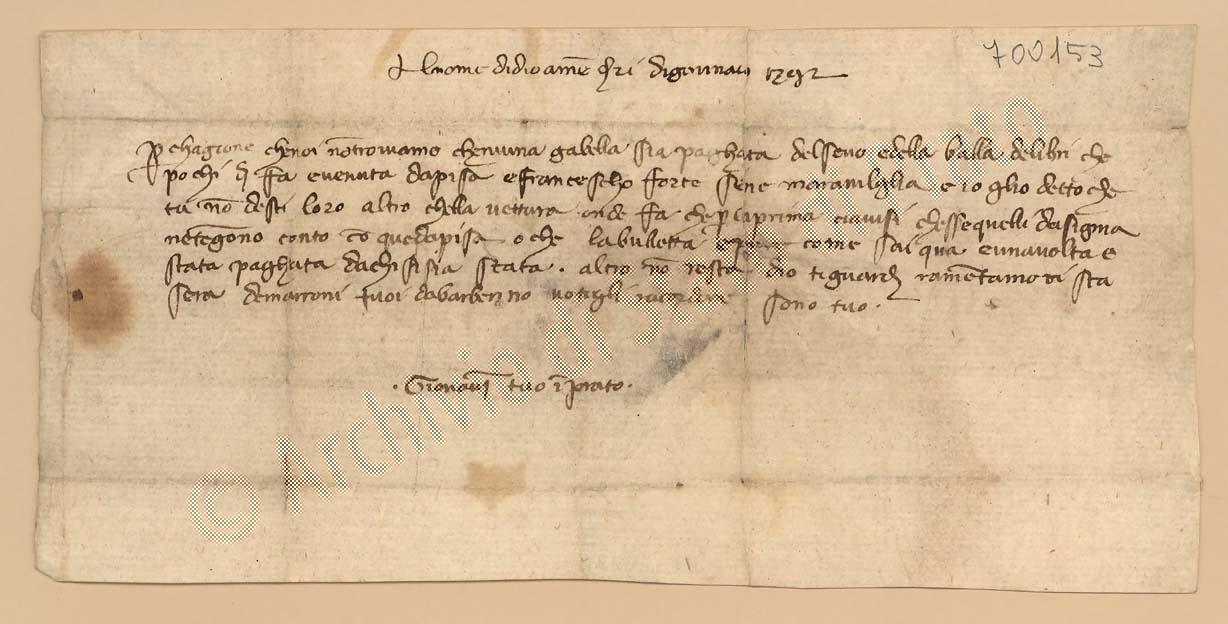 700153
Al nome di dio amē dì di giennaio 1392
P chagione che noi nō troviamo che niuna gabella sia paghata del sevo e della balla de libri che
pochi dì fa è venuta da pisa e francescho forte sene maraviglia e io gliò detto che
tu nō desti loro altro chella vettura onde fa che p la prima ci avisi chesse quelli da signa
ne tēgono conto cō que da pisa o che la bulletta come sai qua è una volta è
stata paghata da chi si sia stata. altro nō resta dio ti guardi ramētamoti sta
sera de marroni tuoi da barberino sono tuo.
. Giovāni tuo ī prato.
© Archivio di Stato di Prato